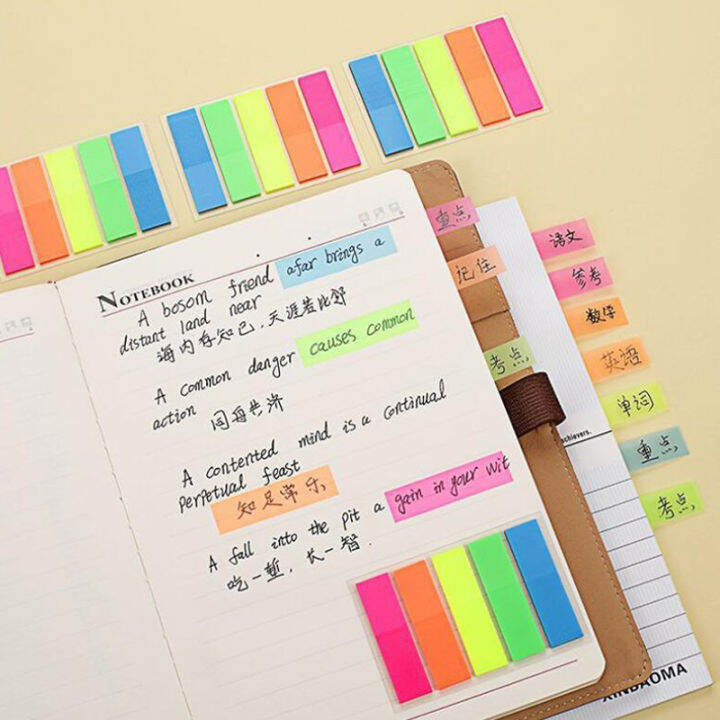 NOTEBOOK
A bosom friend afar brings a
distant land near
海内存知己，天涯若比邻
A common danger causes common
action
同舟共济
A contented mind is a continual
perpetual feast
知足常乐
A fall into the pit a gain in your wit
吃一堑，长一智.
重点
记住
考点
语文
参考
数学
英语
单词
重点
考点
achievers.
XINDAOMA